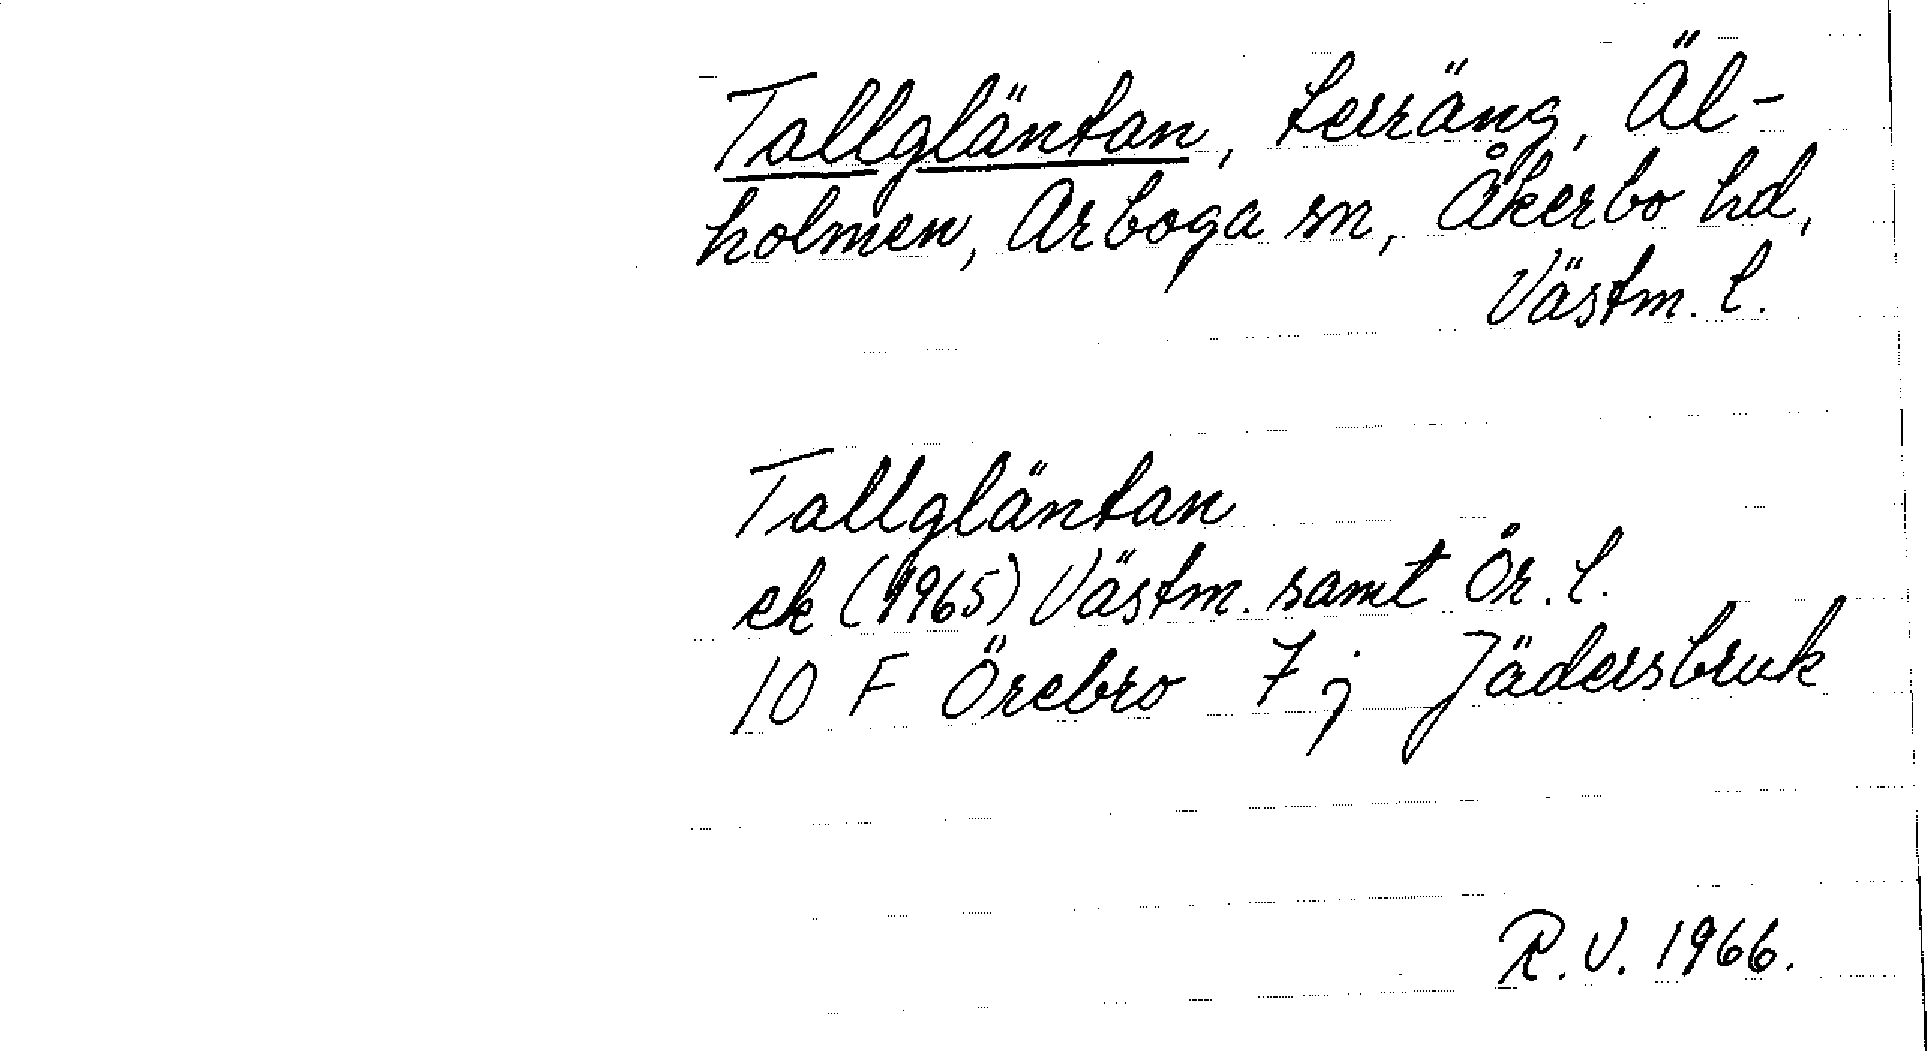 Tallgläntan, terräng, Äl-
holmen, Arboga sn, Åkerbo hd,
Västm. l.
Tallgläntan
ek (1965) Västm. samt Ör. l.
10 F Örebro 7 j Jädersbruk
R.V. 1966.